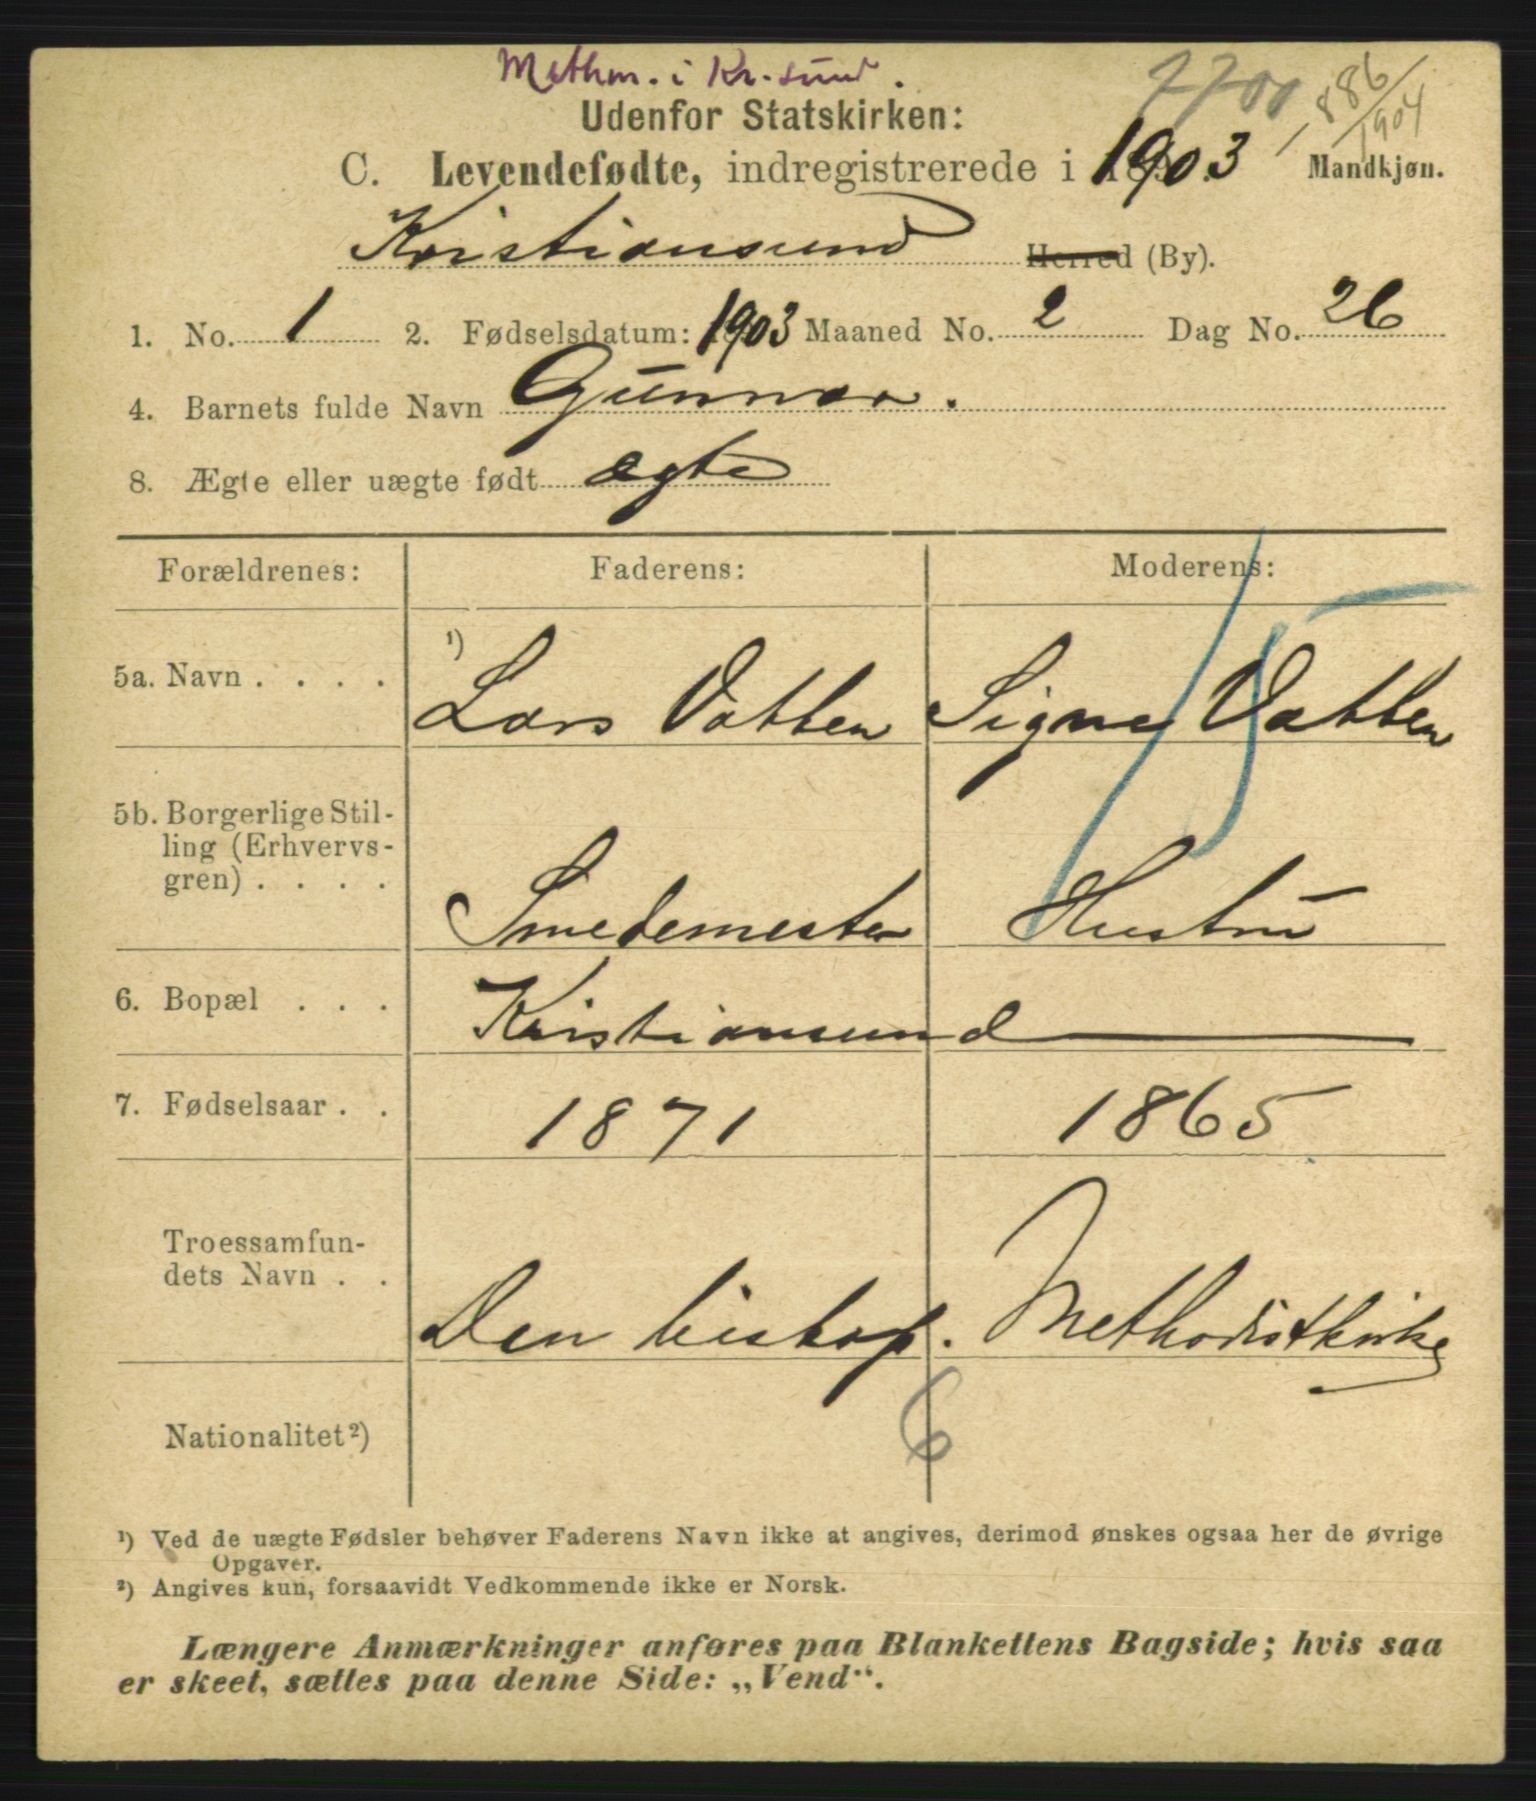 Methm. i Kr.sund.
7700
886/1904
Udenfor Statskirken:
C. Levendefødte, indregistrerede i 1903 Mandkjøn.
Kristiansund Herred (By).
1. No. 1 2. Fødselsdatum: 1903 Maaned No. 2 Dag No. 26
4. Barnets fulde Navn Gunnar.
8. Ægte eller uægte født ægte
Forældrenes: Faderens: Moderens:
5a. Navn . . . . ¹) Lars Vatten Signe Vatten
5b. Borgerlige Stil-
ling (Erhvervs-
gren) . . . . Smedemester Hustru
6. Bopæl . . . Kristiansund
7. Fødselsaar . . 1871 1865
Troessamfun-
dets Navn . . Den biskop. Methodistkirke
6
Nationalitet ²)
¹) Ved de uægte Fødsler behøver Faderens Navn ikke at angives, derimod ønskes ogsaa her de øvrige
Opgaver.
²) Angives kun, forsaavidt Vedkommende ikke er Norsk.
Længere Anmærkninger anføres paa Blankettens Bagside; hvis saa
er skeet, sættes paa denne Side: „Vend“.